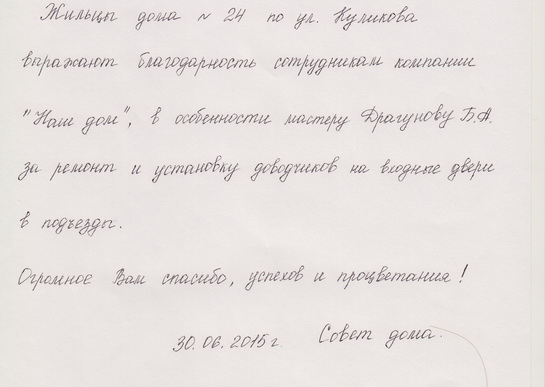 Жильцы дома № 24 по ул. Куликова
выражают благодарность сотрудникам компании
"Наш дом", в особенности мастеру Драгунову Б.А.
за ремонт и установку доводчиков на входные двери
в подъезды.
Огромное Вам спасибо, успехов и процветания!
30.06.2015 г. Совет дома.